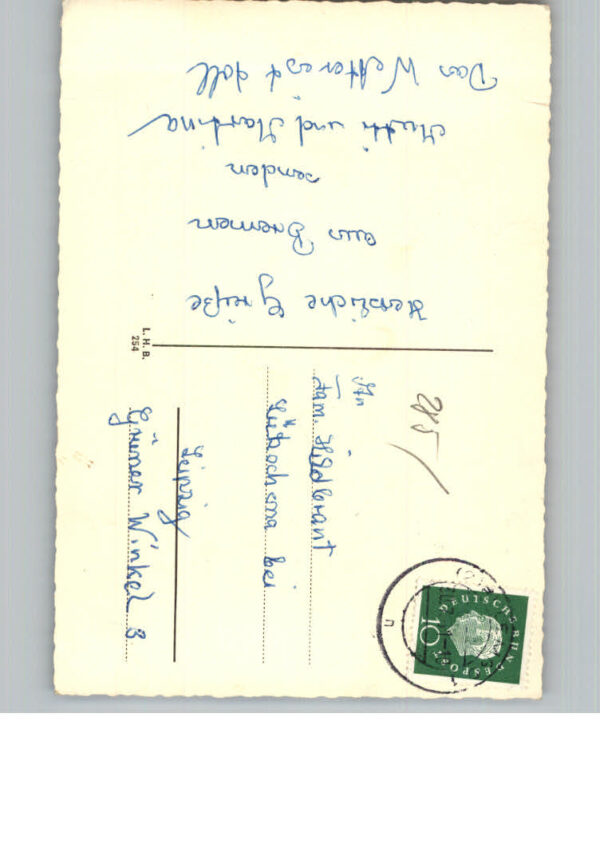 Herzliche Grüße
aus Bremen
senden
Mutti und Martina
Das Wetter ist doll
L. H. B.
254
285
An
Fam. Hildbrant
Lützschena bei
Leipzig
Grüner Winkel 3
DEUTSCHE BUNDESPOST
10